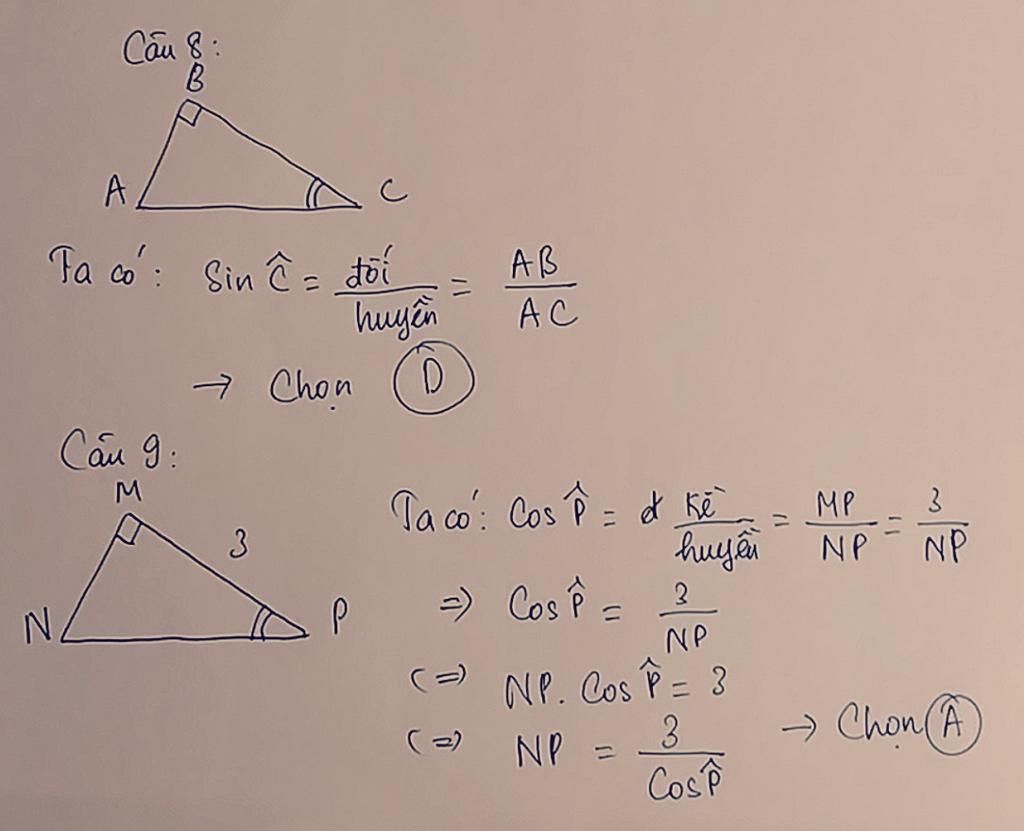 Câu 8:
B
A
C
Ta có: Sin Ĉ = đối / huyền = AB / AC
→ Chọn D
Câu 9:
M
3
N
P
Ta có: Cos P̂ = kề / huyền = MP / NP = 3 / NP
=> Cos P̂ = 3 / NP
(=) NP. Cos P̂ = 3
(=) NP = 3 / Cos P̂ → Chọn A